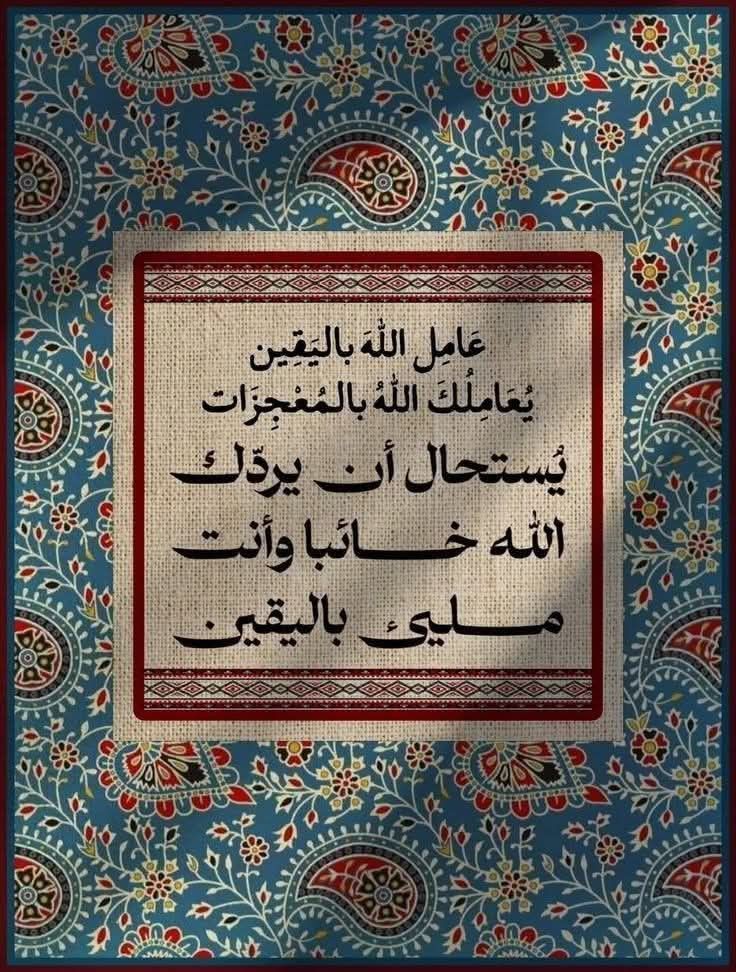 عَامِل اللهَ باليَقِين
يُعَامِلُكَ اللهُ بالمُعْجِزَات
يُستحال أن يردّك
الله خائبا وأنت
مليئ باليقين